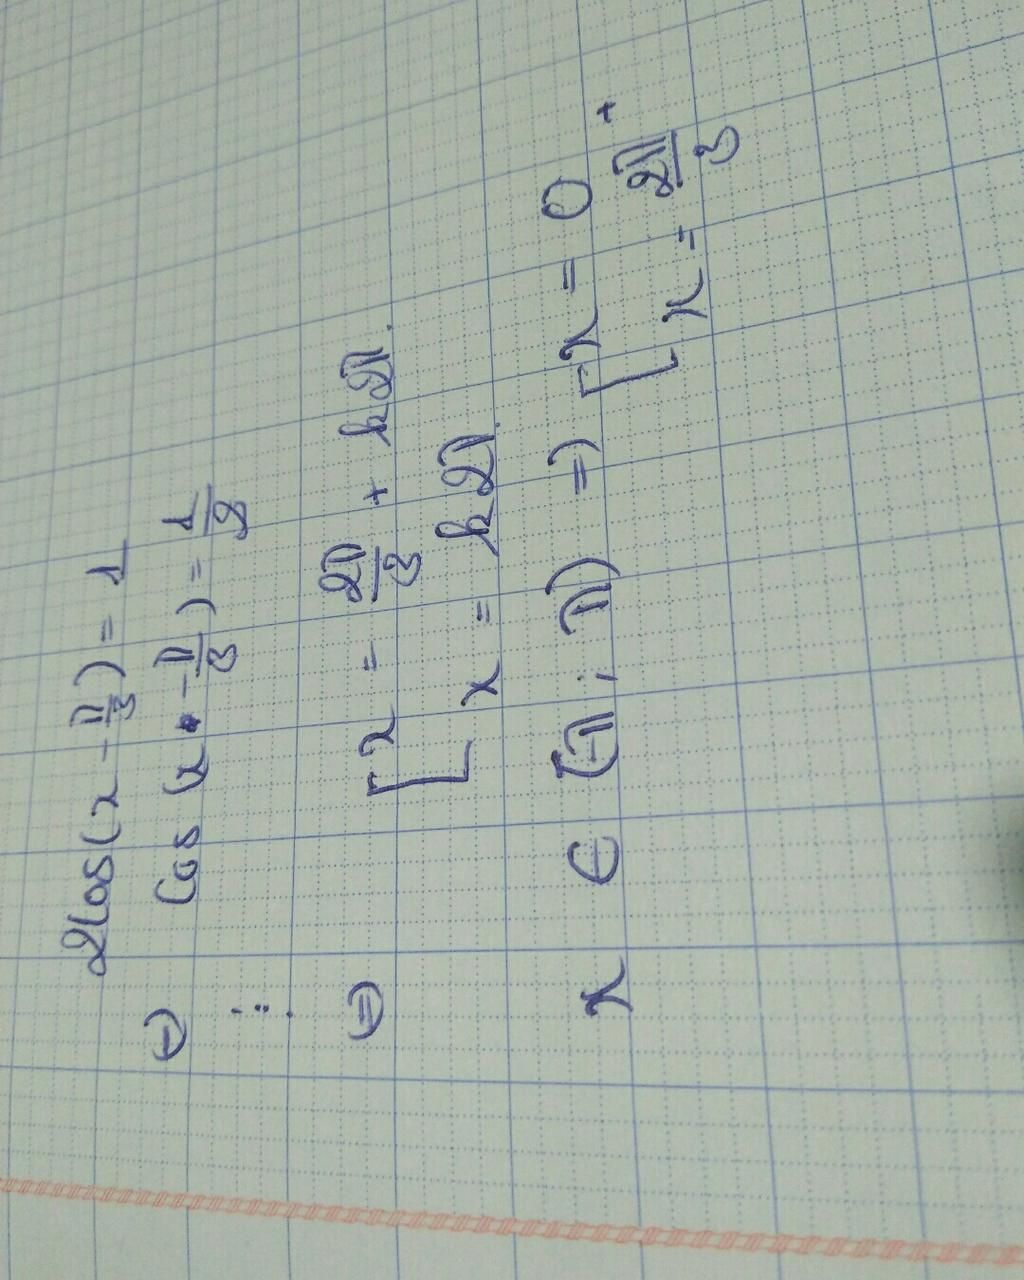 2cos(x - π/3) = 1
⇔ cos(x - π/3) = 1/2
⋮
⇔ [ x = 2π/3 + k2π.
x = k2π.
x ∈ (-π; π) ⇒ [ x = 0
x = 2π/3